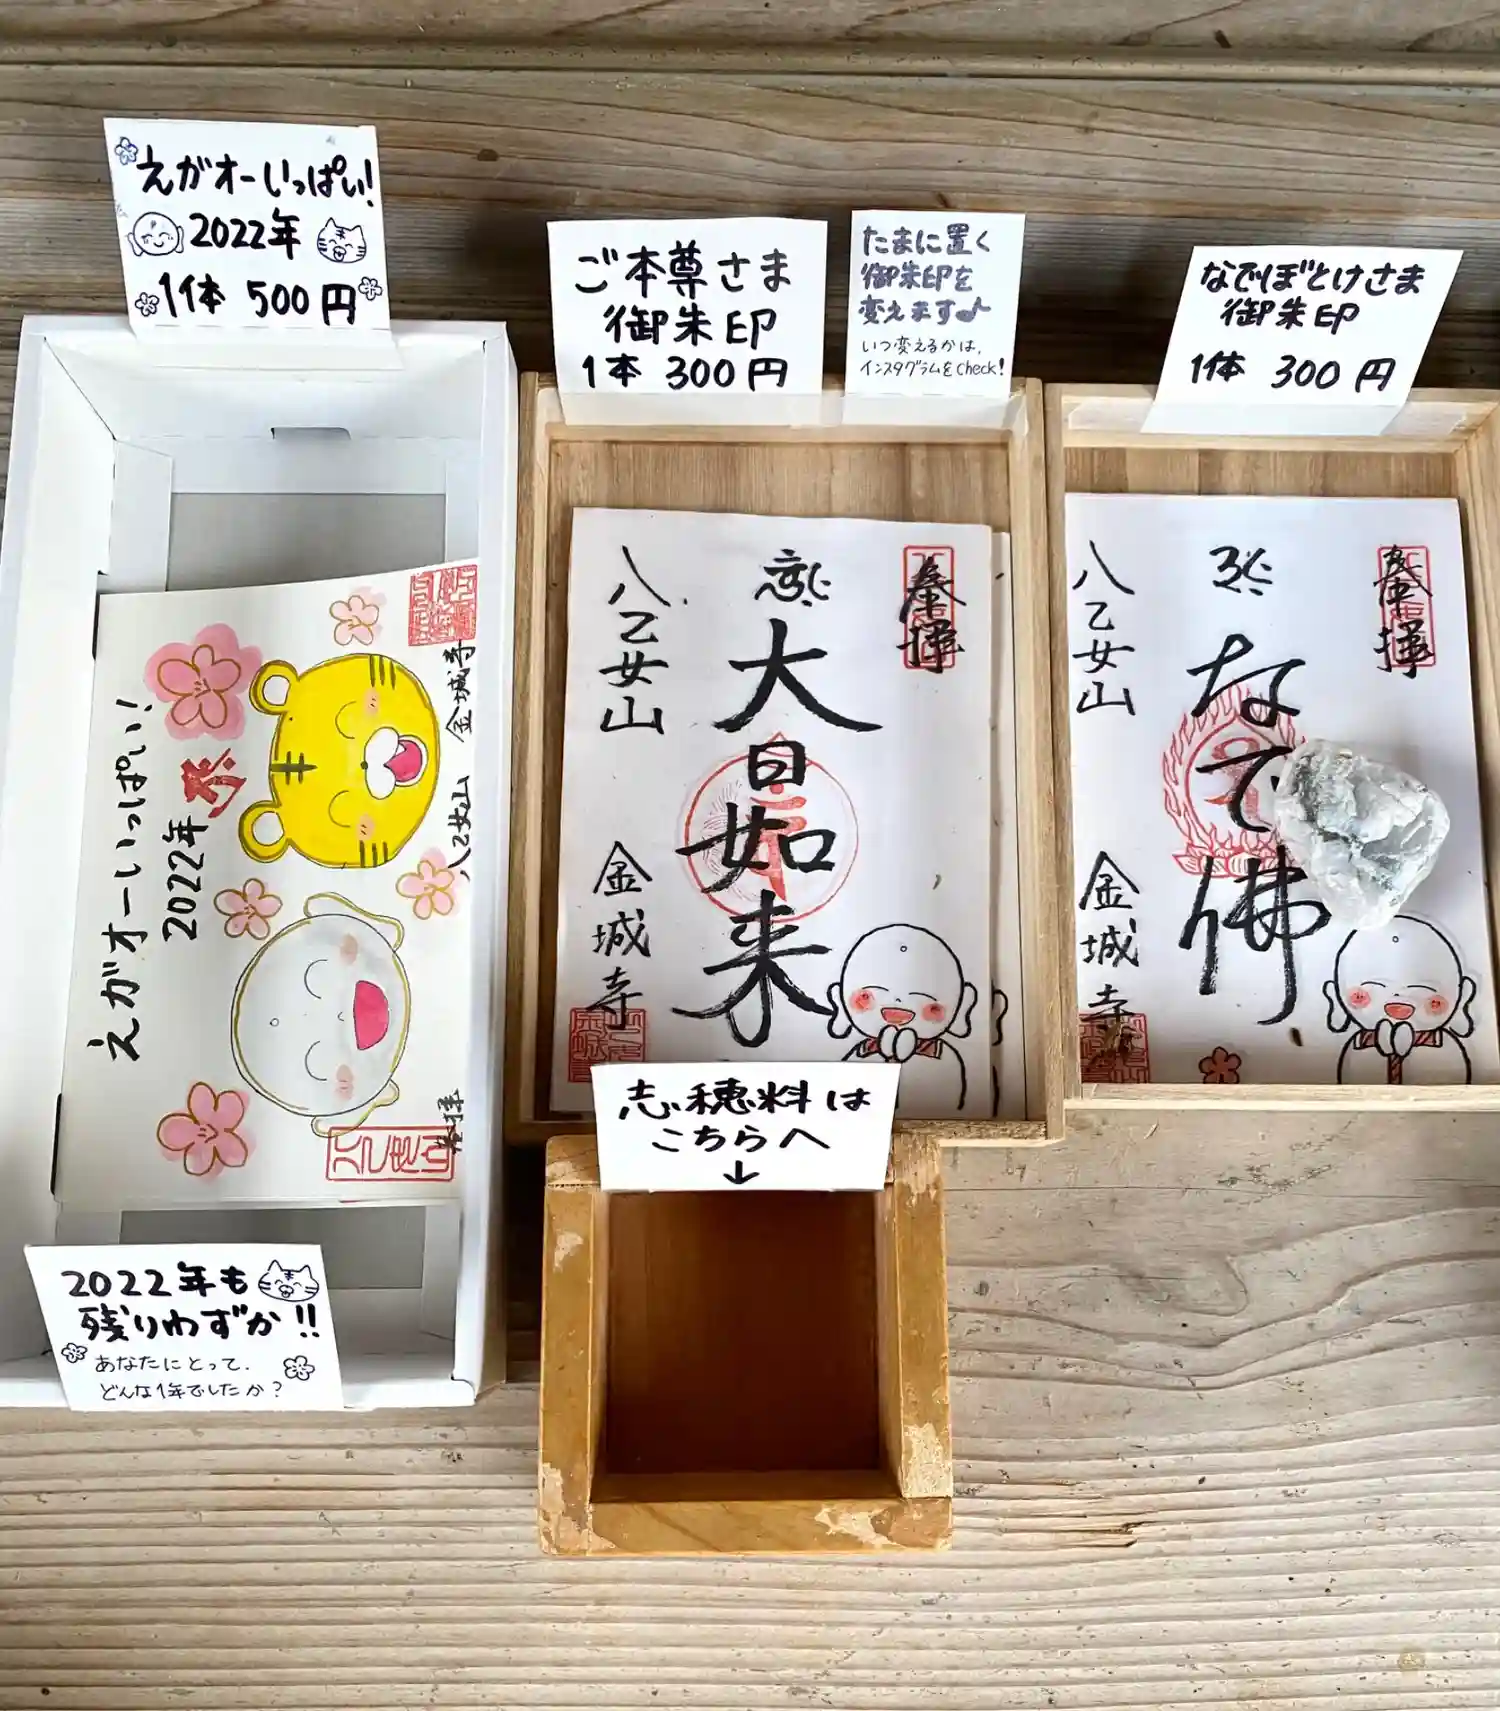 えがオーいっぱい!
2022年
1体 500円
ご本尊さま
御朱印
1本 300円
たまに置く
御朱印を
変えます♪
いつ変えるかは、
インスタグラムをCheck!
なでぼとけさま
御朱印
1体 300円
金城寺
八乙女山
奉拝
2022年
えがオーいっぱい!
奉拝
大日如来
八乙女山
金城寺
奉拝
なで佛
八乙女山
金城寺
志穂料は
こちらへ
↓
2022年も
残りわずか!!
あなたにとって、
どんな1年でしたか?